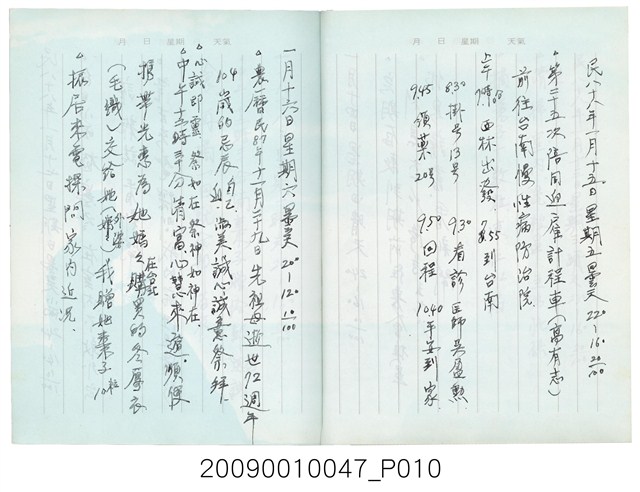 月 日 星期 天氣
民八十八年一月十五日星期五曇天 22°~16° 20/100
▲第二十五次陪同迎雇計程車(高有志)
前往台南慢性病防治院
上午7時 西林出發 7.55到台南
8.30掛号13号 9.30看診 医師吳盈勲
9.45領葯20号 9.50回程 10.40平安到家
月 日 星期 天氣
一月十六日星期六曇天 20°~12° 10/100
▲農曆民87年十一月二十九日先祖母逝世72週年
104歲的忌辰 自己 迎 淑美誠心誠意祭拜.
▲心誠即靈 祭如在 祭神如神在.
▲中午 時 分倩富心慧來遊順便
為她媽 在台北 購買的冬厚衣
(毛織)交給她 外婆 我贈她棗子10粒
▲振居來電探問家内近況.
20090010047_P010